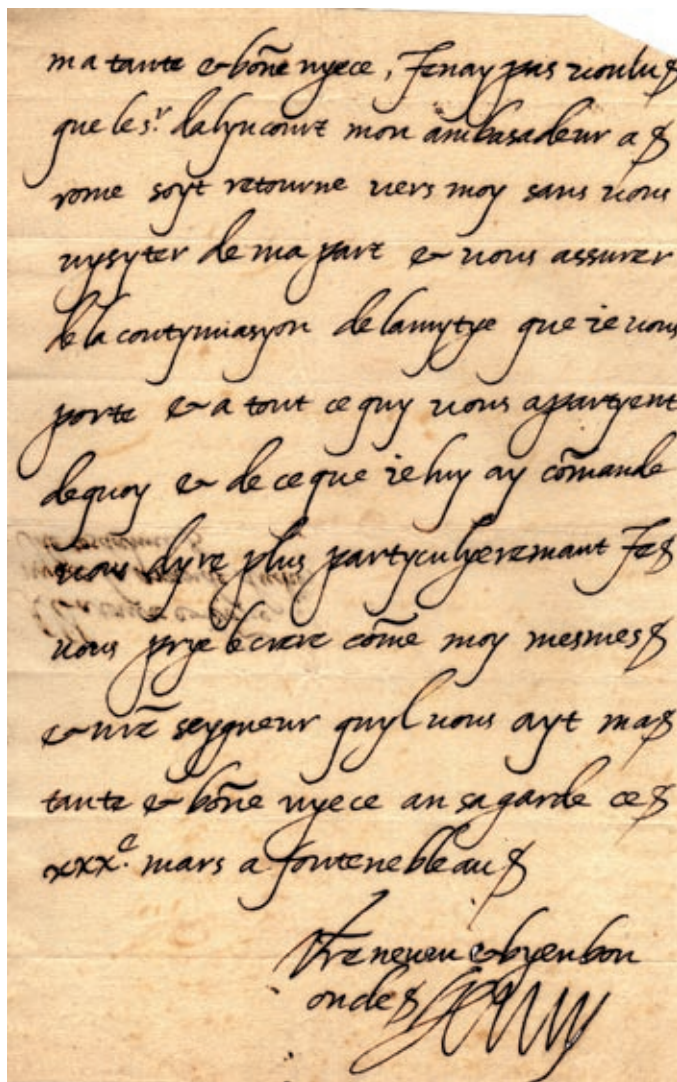 ma tante & bōne nyece, Je nay pas voulu
que le sr. dalyncourt mon ambasadeur a
rome soyt retourne vers moy sans vous
vysyter de ma part & vous assurer
de la contynuasyon de lamytye que ie vous
porte & a tout ce quy vous apartyent
de quoy & de ce que ie luy ay cōmande
vous dyre plus partyculyeremant Je
vous prye le crere cōme moy mesmes
& nre seygneur quyl vous ayt ma
tante & bōne nyece an sa garde ce
xxxe. mars a fontenebleau
Vre neveu & byen bon
oncle Henry